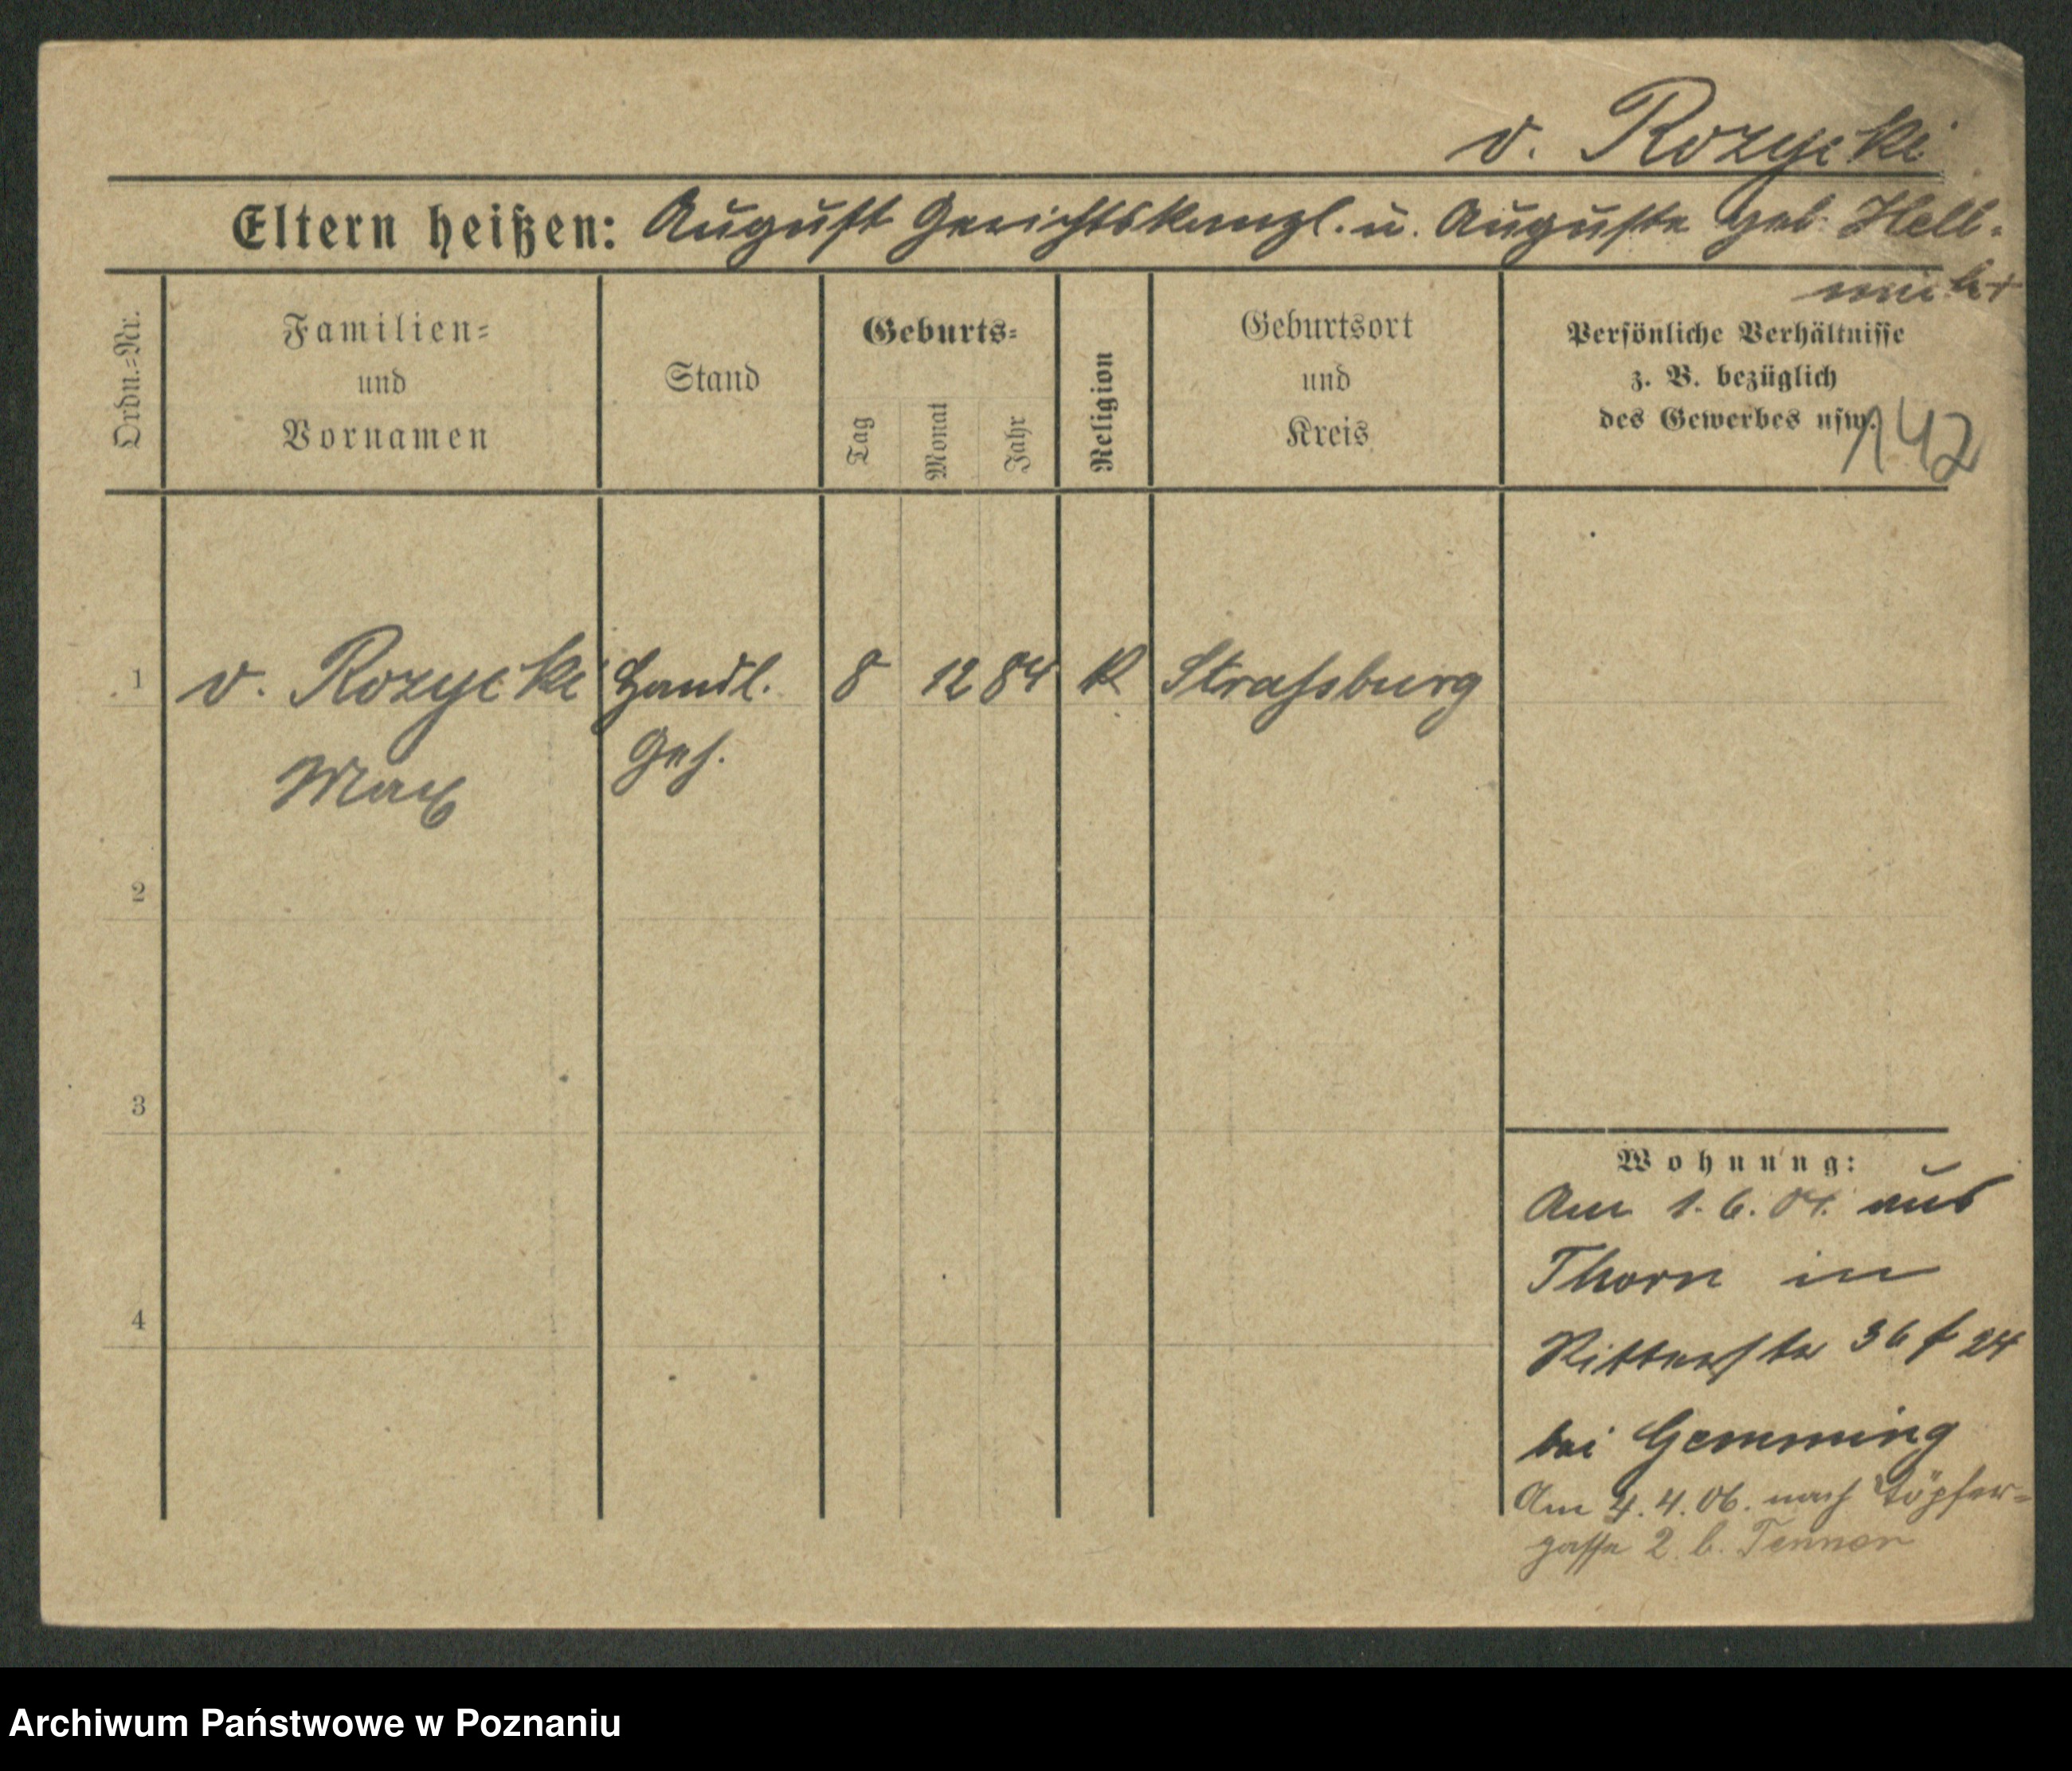 v. Rozycki
Eltern heißen: August Gerichtskanzl. u. Auguste geb. Hell-
Ordn.-Nr.
Familien-
und
Vornamen
Stand
Geburts-
Tag
Monat
Jahr
Religion
Geburtsort
und
Kreis
Persönliche Verhältnisse
z. B. bezüglich
des Gewerbes usw.
142
1 v. Rozycki Handl. 8 12 84 K Strassburg
Max Geh.
2
3
4
Wohnung:
Am 1. 6. 04. aus
Thorn in
Ritterstr 36 f 24
bei Gemming
Am 4. 4. 06. nach Töpfer-
gasse 2 b. Tenner
Archiwum Państwowe w Poznaniu